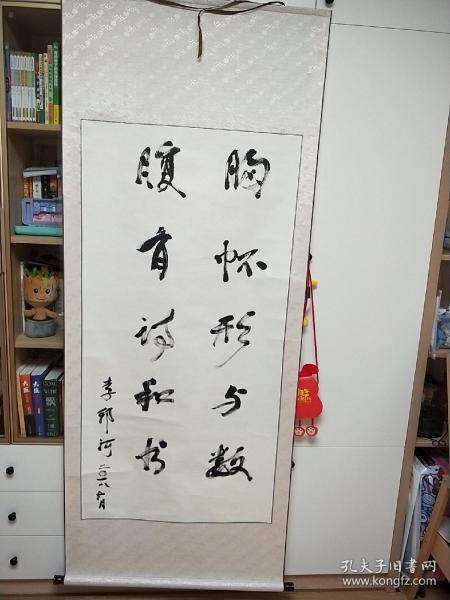 胸怀形与数
腹有诗和书
李邦河 二〇一八年六月
飘
孔夫子旧书网
www.kongfz.com